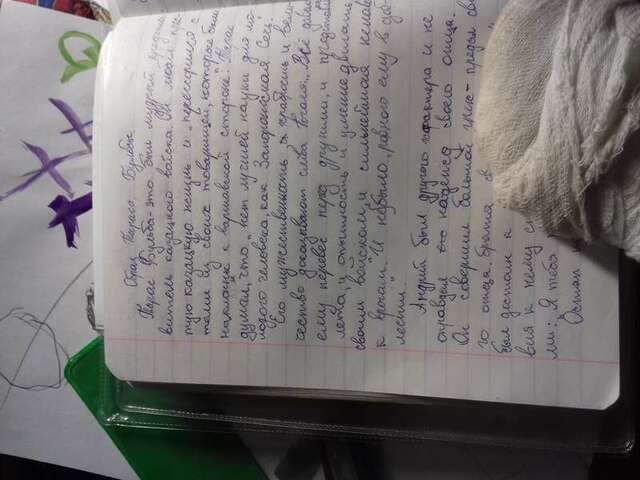 Образ Тараса Бульбы
Тарас Бульба - это был мудрый
витель казацкого войска. Он любил прос-
тую казацкую жизнь и "перессорился с
теми из своих товарищей, которые были
наклонны к варшавской стороне". Тарас
думал, что "нет лучшей науки для мо-
лодого человека, как Запорожская Сечь".
Его мужественность, и храбрость и вели-
чество доказывают слова Гоголя: "Всё давало
ему перевес перед другими, и
лета, и опытность и умение двигать
своим войском, и сильнейшая ненав
к врагам." И небыло "равного ему в до-
лести".
Андрий был другого характера и не
оправдал надежд своего отца.
Он совершил большой грех - предал сво
го отца, брата
был достоин к
вия к нему
ми: "Я тебя
Остап